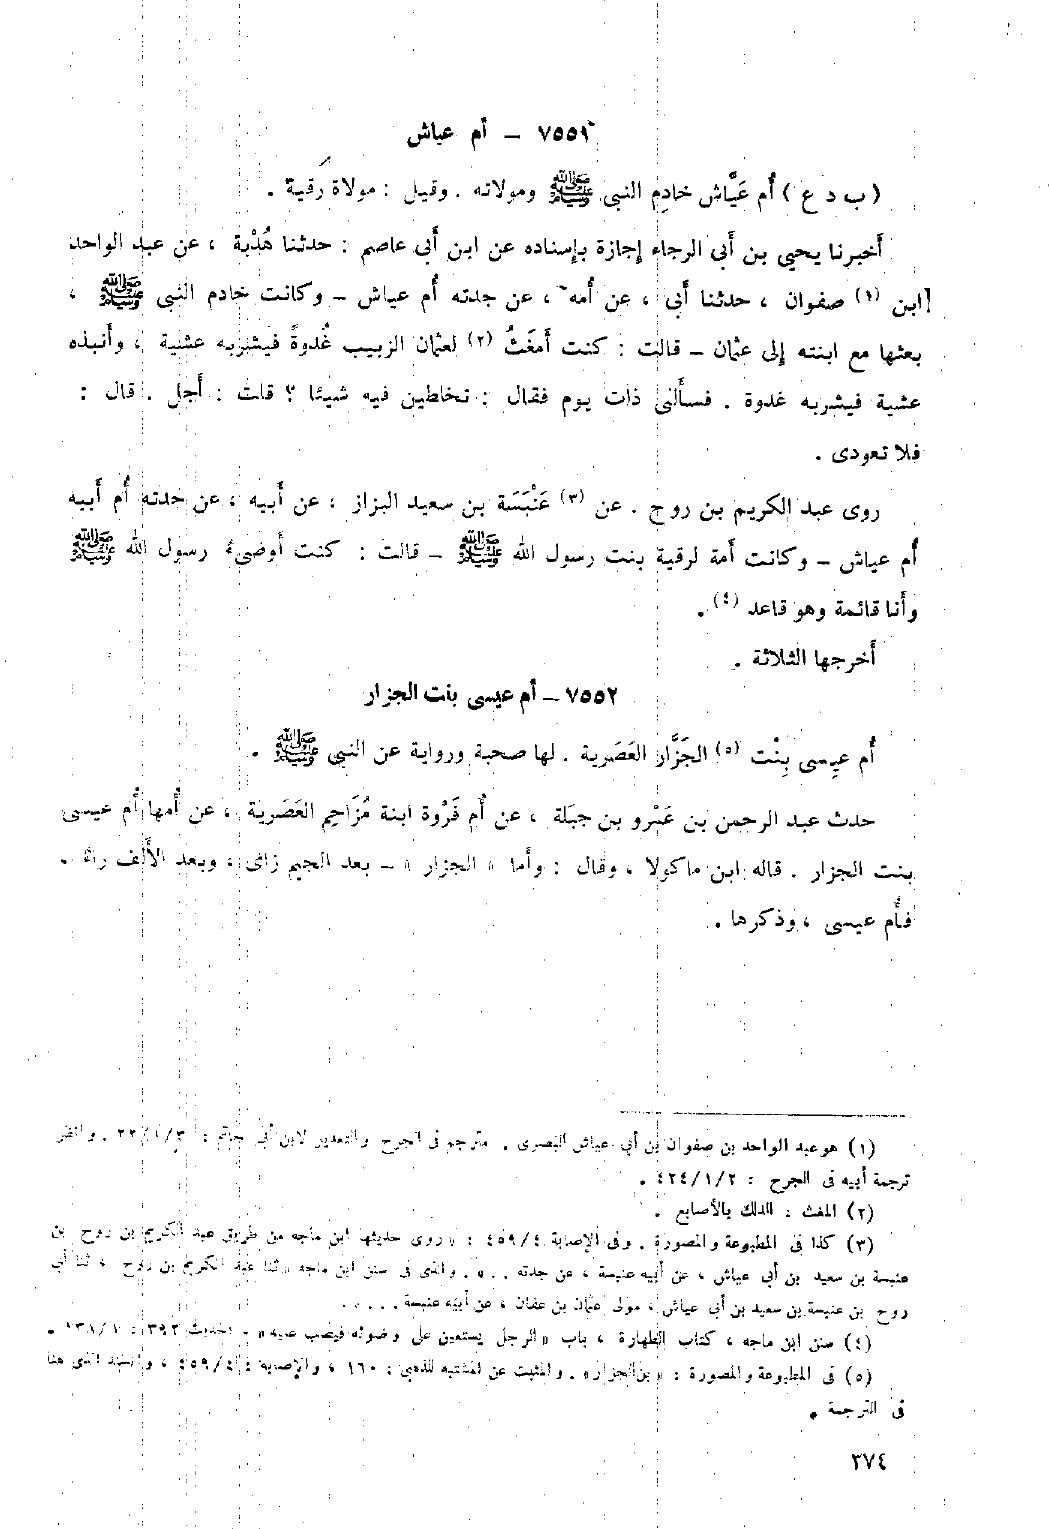 ٧٥٥١ – أم عياش
( ب د ع ) أُم عَيَّاش خادِم النبى ﷺ ومولاته . وقيل : مولاة رُقية .
أَخبرنا يحيى بن أَبى الرجاء إِجازة بإِسناده عن ابن أَبى عاصم : حدثنا هُدْبة ، عن عبد الواحد
[ابن (١) صفوان ، حدثنا أَبى ، عن أُمه ، عن جدته أُم عياش – وكانت خادم النبى ﷺ ،
بعثها مع ابنته إِلى عثمان – قالت : كنت أَمغَثُ (٢) لعثمان الزبيب غُدوةً فيشربه عشية ، وأَنبذه
عشية فيشربه غدوة . فسأَلنى ذات يوم فقال : تخلطين فيه شيئا ؟ قلت : أَجل . قال :
فلا تعودى .
روى عبد الكريم بن روح . عن (٣) عَنْبَسَة بن سعيد البزاز ، عن أَبيه ، عن جدته أُم أَبيه
أُم عياش – وكانت أَمة لرقية بنت رسول الله ﷺ – قالت : كنت أُوضىءُ رسول الله ﷺ
وأَنا قائمة وهو قاعد (٤) .
أَخرجها الثلاثة .
٧٥٥٢ – أم عيسى بنت الجزار
أُم عيِسى بِنْت (٥) الجَزَّار العَصَرية . لها صحبة ورواية عن النبى ﷺ .
حدث عبد الرحمن بن عَمْرو بن جبَلة ، عن أُم فَرْوة ابنة مُزَاحِم العَصَرية ، عن أُمها أُم عيسى
بنت الجزار . قاله ابن ماكولا ، وقال : وأما « الجزار » – بعد الجيم زاى ، وبعد الأَلف راءٌ .
فأُم عيسى ، وذكرها .
(١) هو عبد الواحد بن صفوان بن أبى عياش البصرى . مترجم فى الجرح والتعديل لابن أبى حاتم : ٢٢/١/٣ . وانظر
ترجمة أبيه فى الجرح : ٤٢٤/١/٢ .
(٢) المغث : الدلك بالأصابع .
(٣) كذا فى المطبوعة والمصورة . وفى الإصابة ٤٥٩/٤ : « روى حديثها ابن ماجه من طريق عبد الكريم بن روح بن
عنبسة بن سعيد بن أبى عياش ، عن أبيه عنبسة ، عن جدته . . » . والذى فى سنن ابن ماجه « ثنا عبد الكريم بن روح ، ثنا أبى
روح بن عنبسة بن سعيد بن أبى عياش ، مولى عثمان بن عفان ، عن أبيه عنبسة . . . . .
(٤) سنن ابن ماجه ، كتاب الطهارة ، باب « الرجل يستعين على وضوئه فيصب عليه » . الحديث ٣٩٢ : ١٣٨/١ .
(٥) فى المطبوعة والمصورة : « بن الجزار » . والمثبت عن المشتبه للذهبى : ١٦٠ ، والإصابة : ٤٥٩/٤ ، والسند الذى هنا
فى الترجمة .
٣٧٤